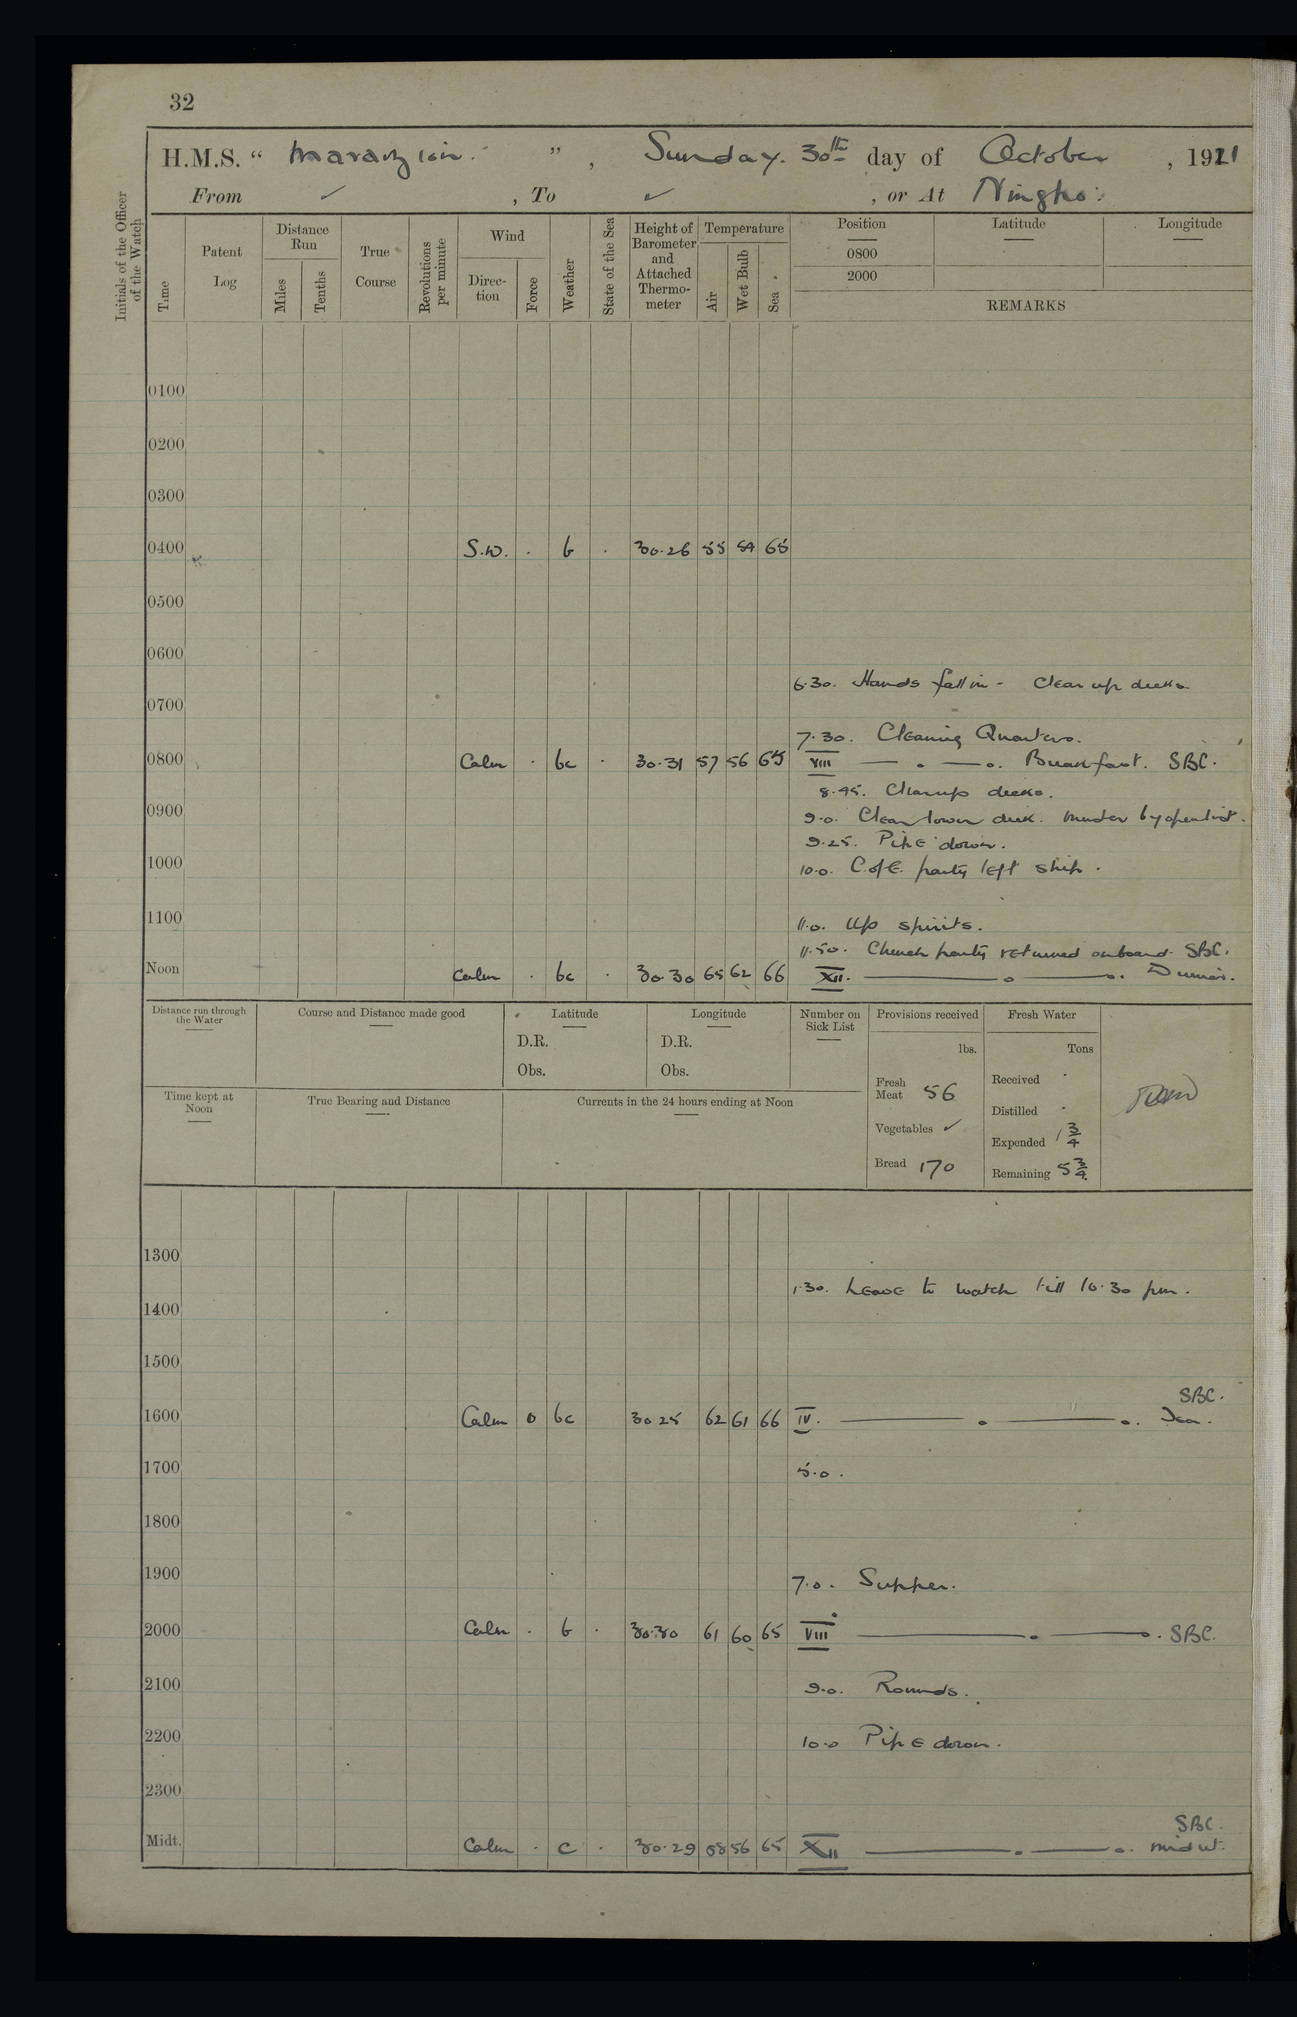 32
H.M.S. “ Marazion. ” , Sunday. 30th day of October , 1921
From ✓ , To ✓ , or At Ningpo.
Initials of the Officer of the Watch
Time
Patent Log
Distance Run
Miles
Tenths
True Course
Revolutions per minute
Wind
Direction
Force
Weather
State of the Sea
Height of Barometer and Attached Thermometer
Temperature
Air
Wet Bulb
Sea
Position
Latitude
Longitude
0800
2000
REMARKS
0100
0200
0300
0400 S.W. . b . 30.26 55 54 65
0500
0600
6.30. Hands fall in - Clear up decks
0700
7.30. Cleaning Quarters.
0800 Calm . bc . 30.31 57 56 65 VIII Breakfast. SBC.
8.45. Clear up decks.
0900 9.0. Clear lower deck. Muster by open list.
9.25. Pipe down.
1000 10.0. C.of E. party left ship.
1100 11.0. Up spirits.
11.50. Church party returned onboard. SBC.
Noon Calm . bc . 30.30 65 62 66 XII. Dinner.
Distance run through the Water
Course and Distance made good
Latitude
D.R.
Obs.
Longitude
D.R.
Obs.
Number on Sick List
Provisions received
lbs.
Fresh Meat 56
Vegetables ✓
Bread 170
Fresh Water
Tons
Received .
Distilled .
Expended 1 3/4
Remaining 5 3/4
Time kept at Noon
True Bearing and Distance
Currents in the 24 hours ending at Noon
1300
1.30. Leave to watch till 10.30 pm.
1400
1500
SBC.
1600 Calm 0 bc 30 25 62 61 66 IV. Tea.
1700 5.0.
1800
1900 7.0. Supper.
2000 Calm . b . 30.30 61 60 65 VIII SBC.
2100 9.0. Rounds.
2200 10.0 Pipe down.
2300
SBC.
Midt. Calm . c . 30.29 58 56 65 XII midnt.